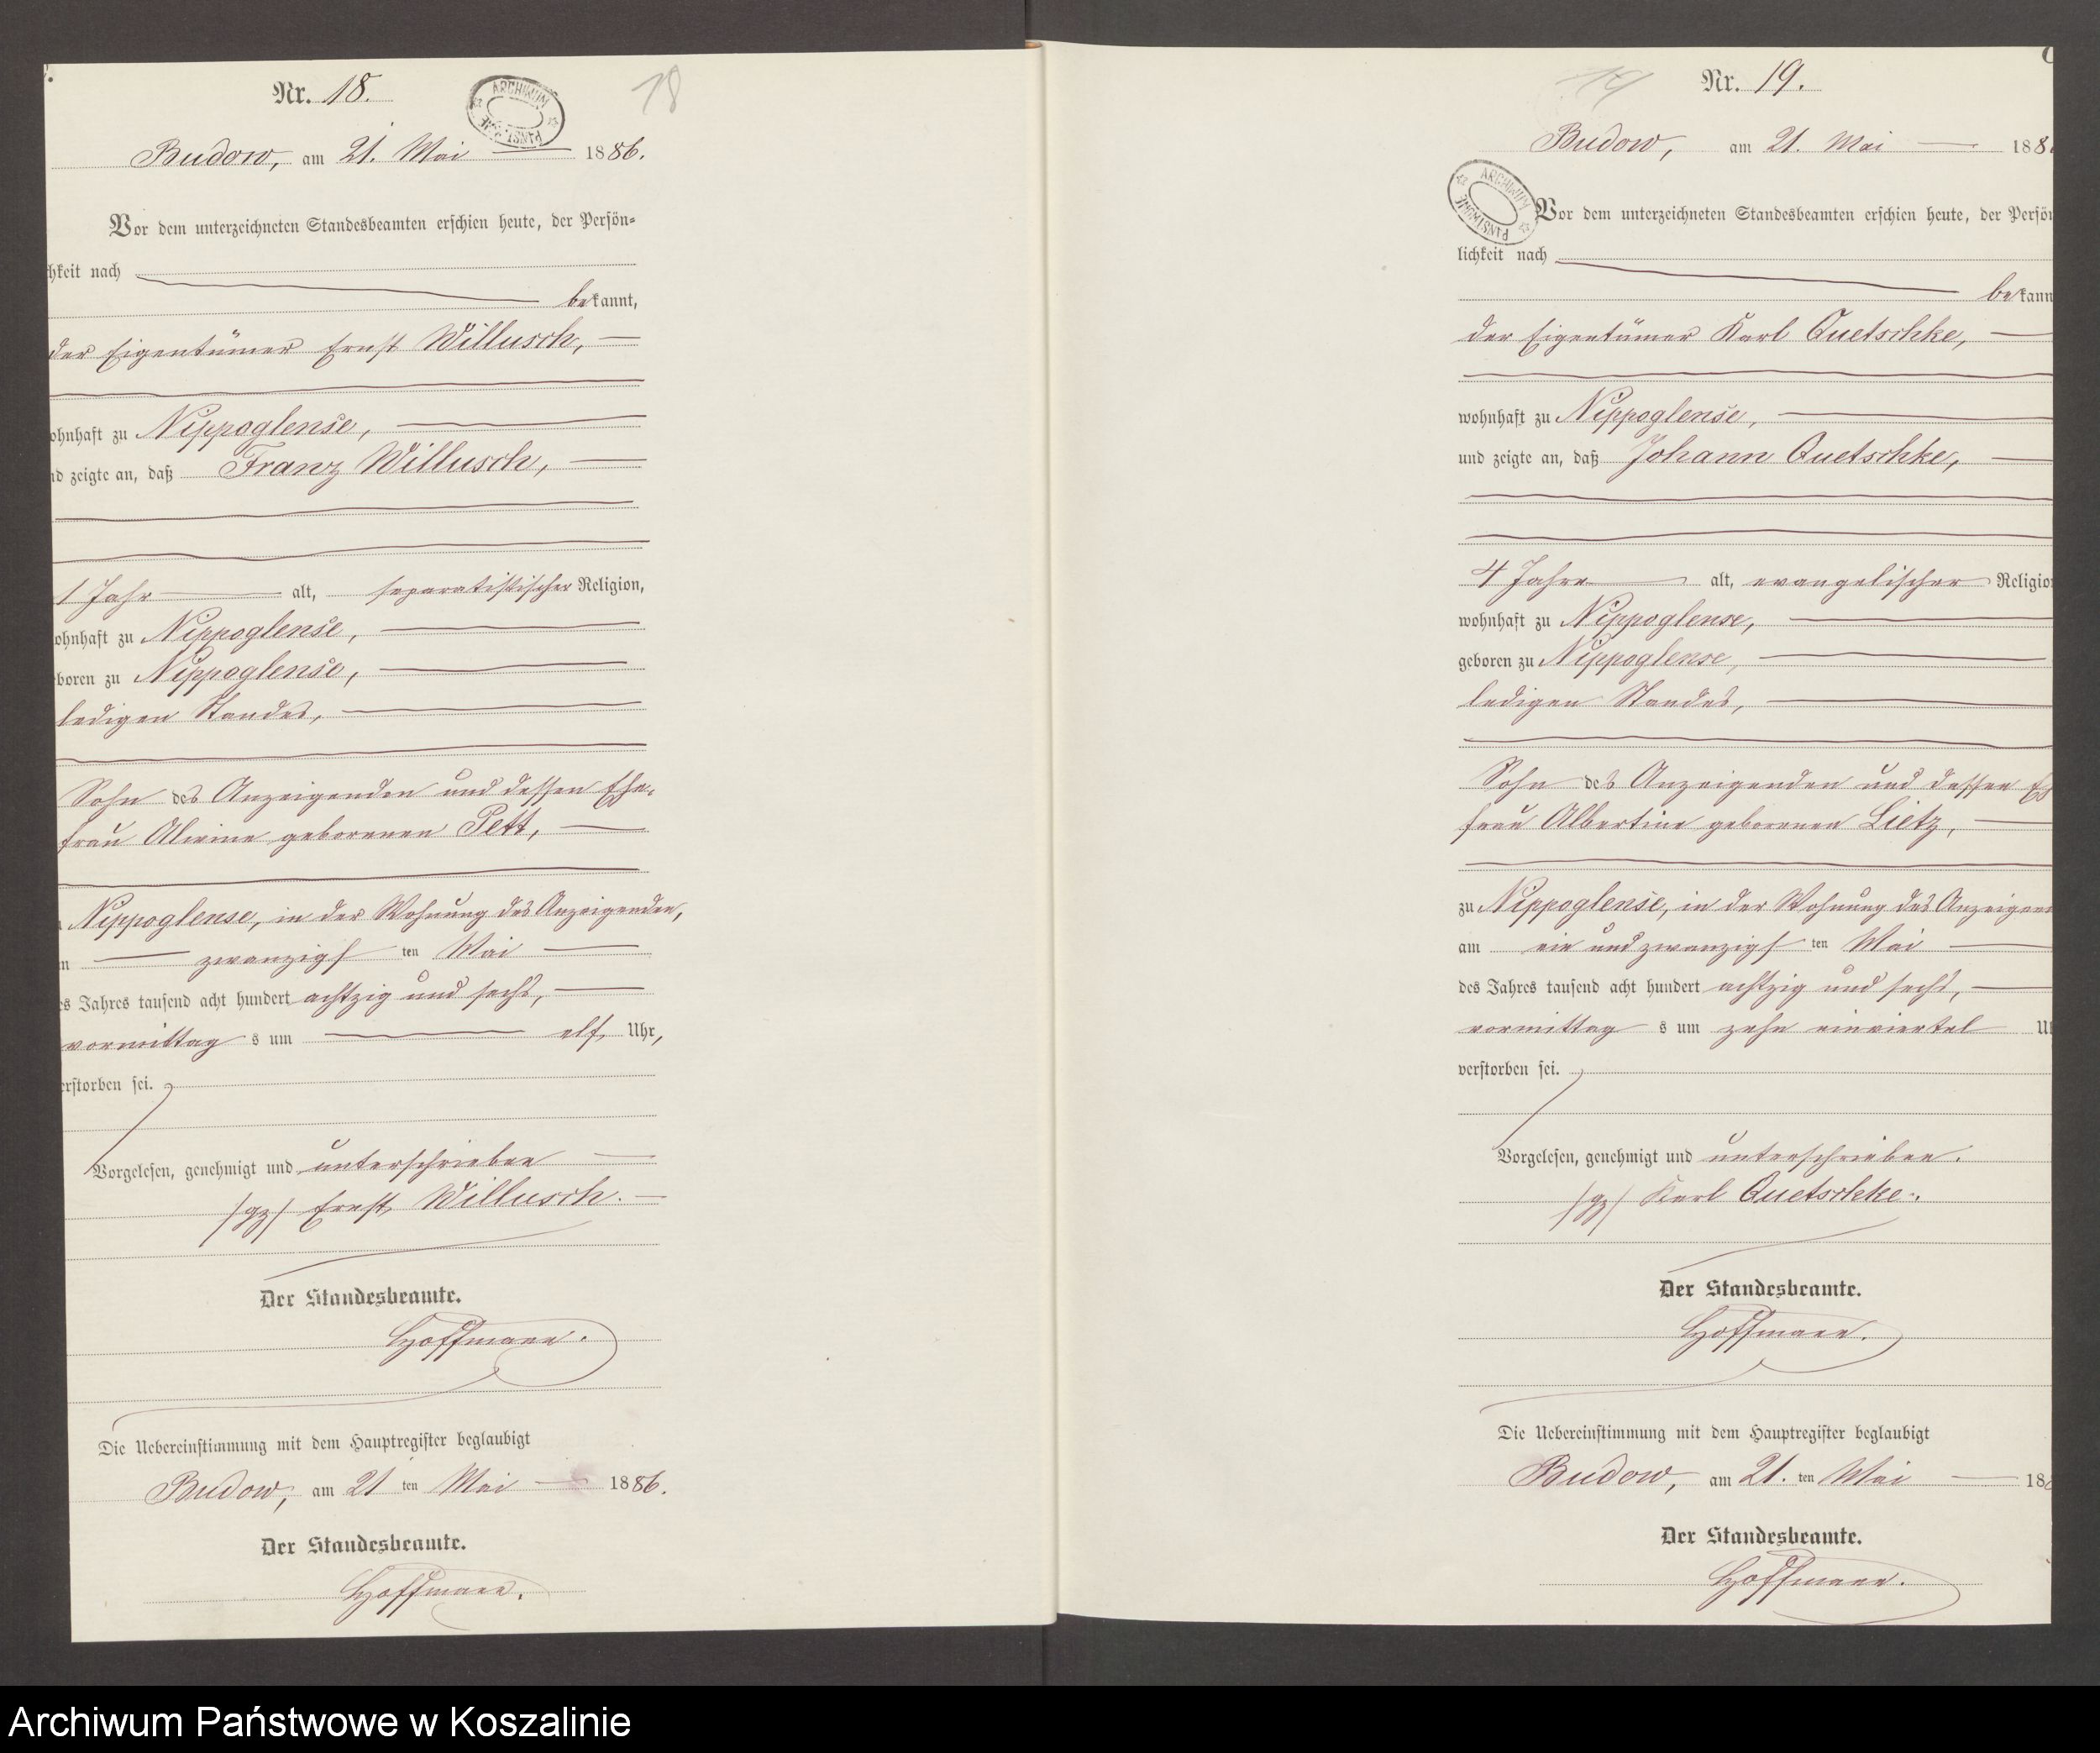 Nr. 18.
18
ARCHIWUM PAŃSTWOWE
Budow, am 21. Mai 1886.
Vor dem unterzeichneten Standesbeamten erschien heute, der Persön-
hkeit nach
bekannt,
der Eigentümer Ernst Willusch,
ohnhaft zu Nippoglense,
nd zeigte an, daß Franz Willusch,
1 Jahr alt, separatistischer Religion,
ohnhaft zu Nippoglense,
boren zu Nippoglense,
ledigen Standes,
Sohn des Anzeigenden und dessen Ehe-
frau Alwine geborenen Pett,
Nippoglense, in der Wohnung des Anzeigenden,
m zwanzigsten Mai
es Jahres tausend acht hundert achtzig und sechs,
vormittags um elf Uhr,
erstorben sei.
Vorgelesen, genehmigt und unterschrieben
/gz/ Ernst Willusch.
Der Standesbeamte.
Hoffmann.
Die Uebereinstimmung mit dem Hauptregister beglaubigt
Budow, am 21ten Mai 1886.
Der Standesbeamte.
Hoffmann.
19
Nr. 19.
Budow, am 21. Mai 188
ARCHIWUM PAŃSTWOWE
Vor dem unterzeichneten Standesbeamten erschien heute, der Persön
lichkeit nach
bekann
der Eigentümer Karl Quetschke,
wohnhaft zu Nippoglense,
und zeigte an, daß Johann Quetschke,
4 Jahre alt, evangelischer Religio
wohnhaft zu Nippoglense,
geboren zu Nippoglense,
ledigen Standes,
Sohn des Anzeigenden und dessen Eh
frau Albertine geborenen Lietz,
zu Nippoglense, in der Wohnung des Anzeigen
am ein und zwanzigsten Mai
des Jahres tausend acht hundert achtzig und sechs,
vormittags um zehn einviertel U
verstorben sei.
Vorgelesen, genehmigt und unterschrieben.
/gz/ Karl Quetschke.
Der Standesbeamte.
Hoffmann.
Die Uebereinstimmung mit dem Hauptregister beglaubigt
Budow, am 21.ten Mai 18
Der Standesbeamte.
Hoffmann.
Archiwum Państwowe w Koszalinie